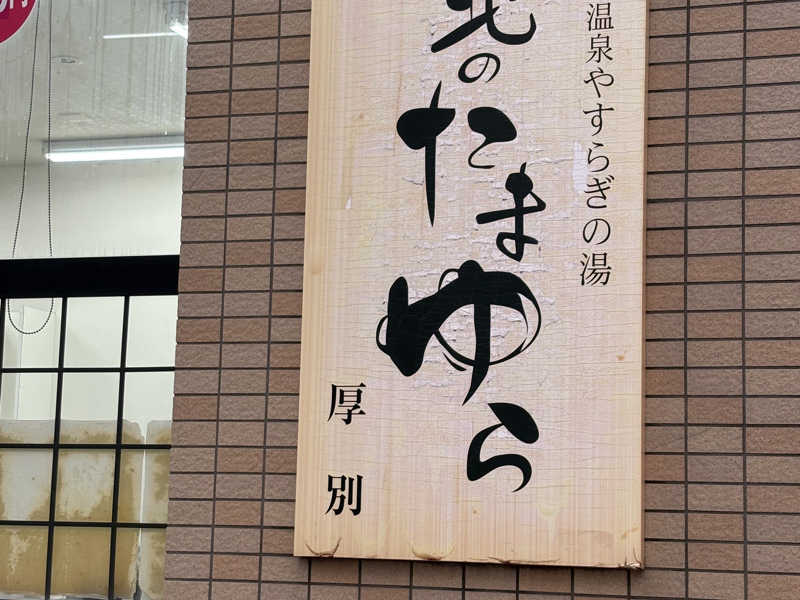 温泉やすらぎの湯
北のたまゆら
厚別